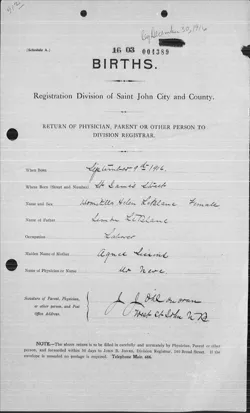 (Schedule A.)
16 03 001389
BIRTHS.
Registration Division of Saint John City and County.
RETURN OF PHYSICIAN, PARENT OR OTHER PERSON TO
DIVISION REGISTRAR.
When Born September 9th 1916
Where Born (Street and Number) St James Street
Name and Sex Helen LeBlanc Female
Name of Father LeBlanc
Occupation Laborer
Maiden Name of Mother Agnes
Name of Physician or Nurse
Signature of Parent, Physician,
or other person, and Post
Office Address.
West St John N.B.
NOTE.—The above return to be filled in carefully and correctly by Physician, Parent or other
person, and forwarded within 30 days to John B. Jones, Division Registrar, 160 Broad Street. If
the envelope is unsealed no postage is required. Telephone Main